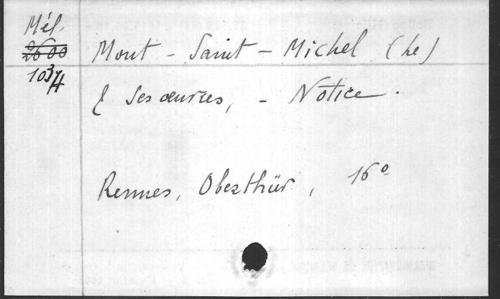 Mél.
2600
103/4
Mont - Saint - Michel (Le)
& ses œuvres, - Notice.
Rennes, Oberthür, 16°